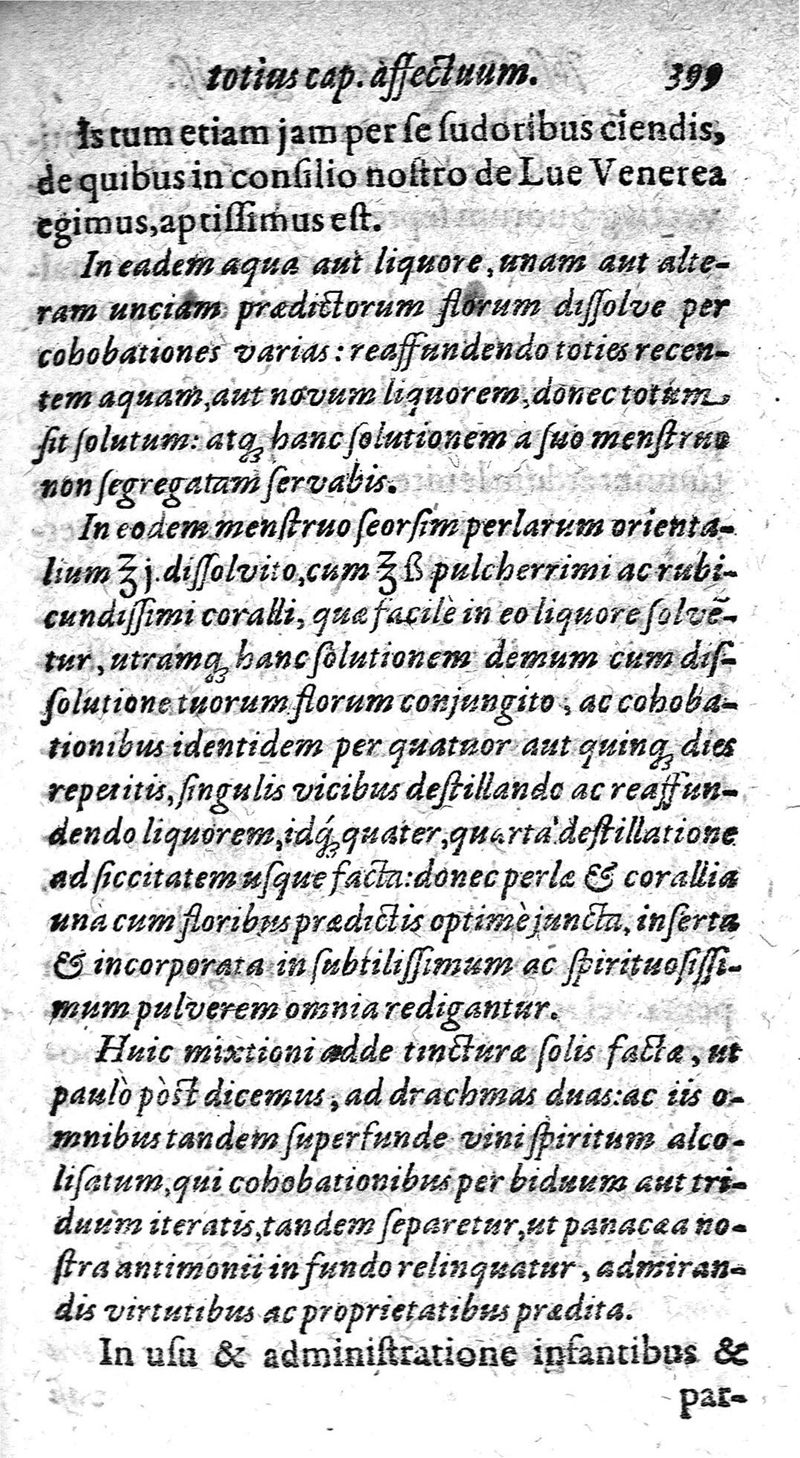 totius cap. affectuum. 399
Is tum etiam jam per se sudoribus ciendis,
de quibus in consilio nostro de Lue Venerea
egimus, aptissimus est.
In eadem aqua aut liquore, unam aut alte-
ram unciam prædictorum florum dissolve per
cohobationes varias: reaffundendo toties recen-
tem aquam, aut novum liquorem, donec totum
sit solutum: atq́ꝫ hanc solutionem a suo menstruo
non segregatam servabis.
In eodem menstruo seorsim perlarum orienta-
lium ℥ j. dissolvito, cum ℥ ß pulcherrimi ac rubi-
cundissimi coralli, quæ facilè in eo liquore solvē-
tur, utramqꝫ hanc solutionem demum cum dis-
solutione tuorum florum conjungito, ac cohoba-
tionibus identidem per quatuor aut quinqꝫ dies
repetitis, singulis vicibus destillando ac reaffun-
dendo liquorem, idq́ꝫ quater, quarta destillatione
ad siccitatem usque facta: donec perlæ & corallia
unà cum floribus prædictis optimè juncta, inserta
& incorporata in subtilissimum ac spirituosissi-
mum pulverem omnia redigantur.
Huic mixtioni adde tincturæ solis factæ, ut
paulò pòst dicemus, ad drachmas duas: ac iis o-
mnibus tandem superfunde vini spiritum alco-
lisatum, qui cohobationibus per biduum aut tri-
duum iteratis, tandem separetur, ut panacæa no-
stra antimonii in fundo relinquatur, admiran-
dis virtutibus ac proprietatibus prædita.
In usu & administratione infantibus &
par-